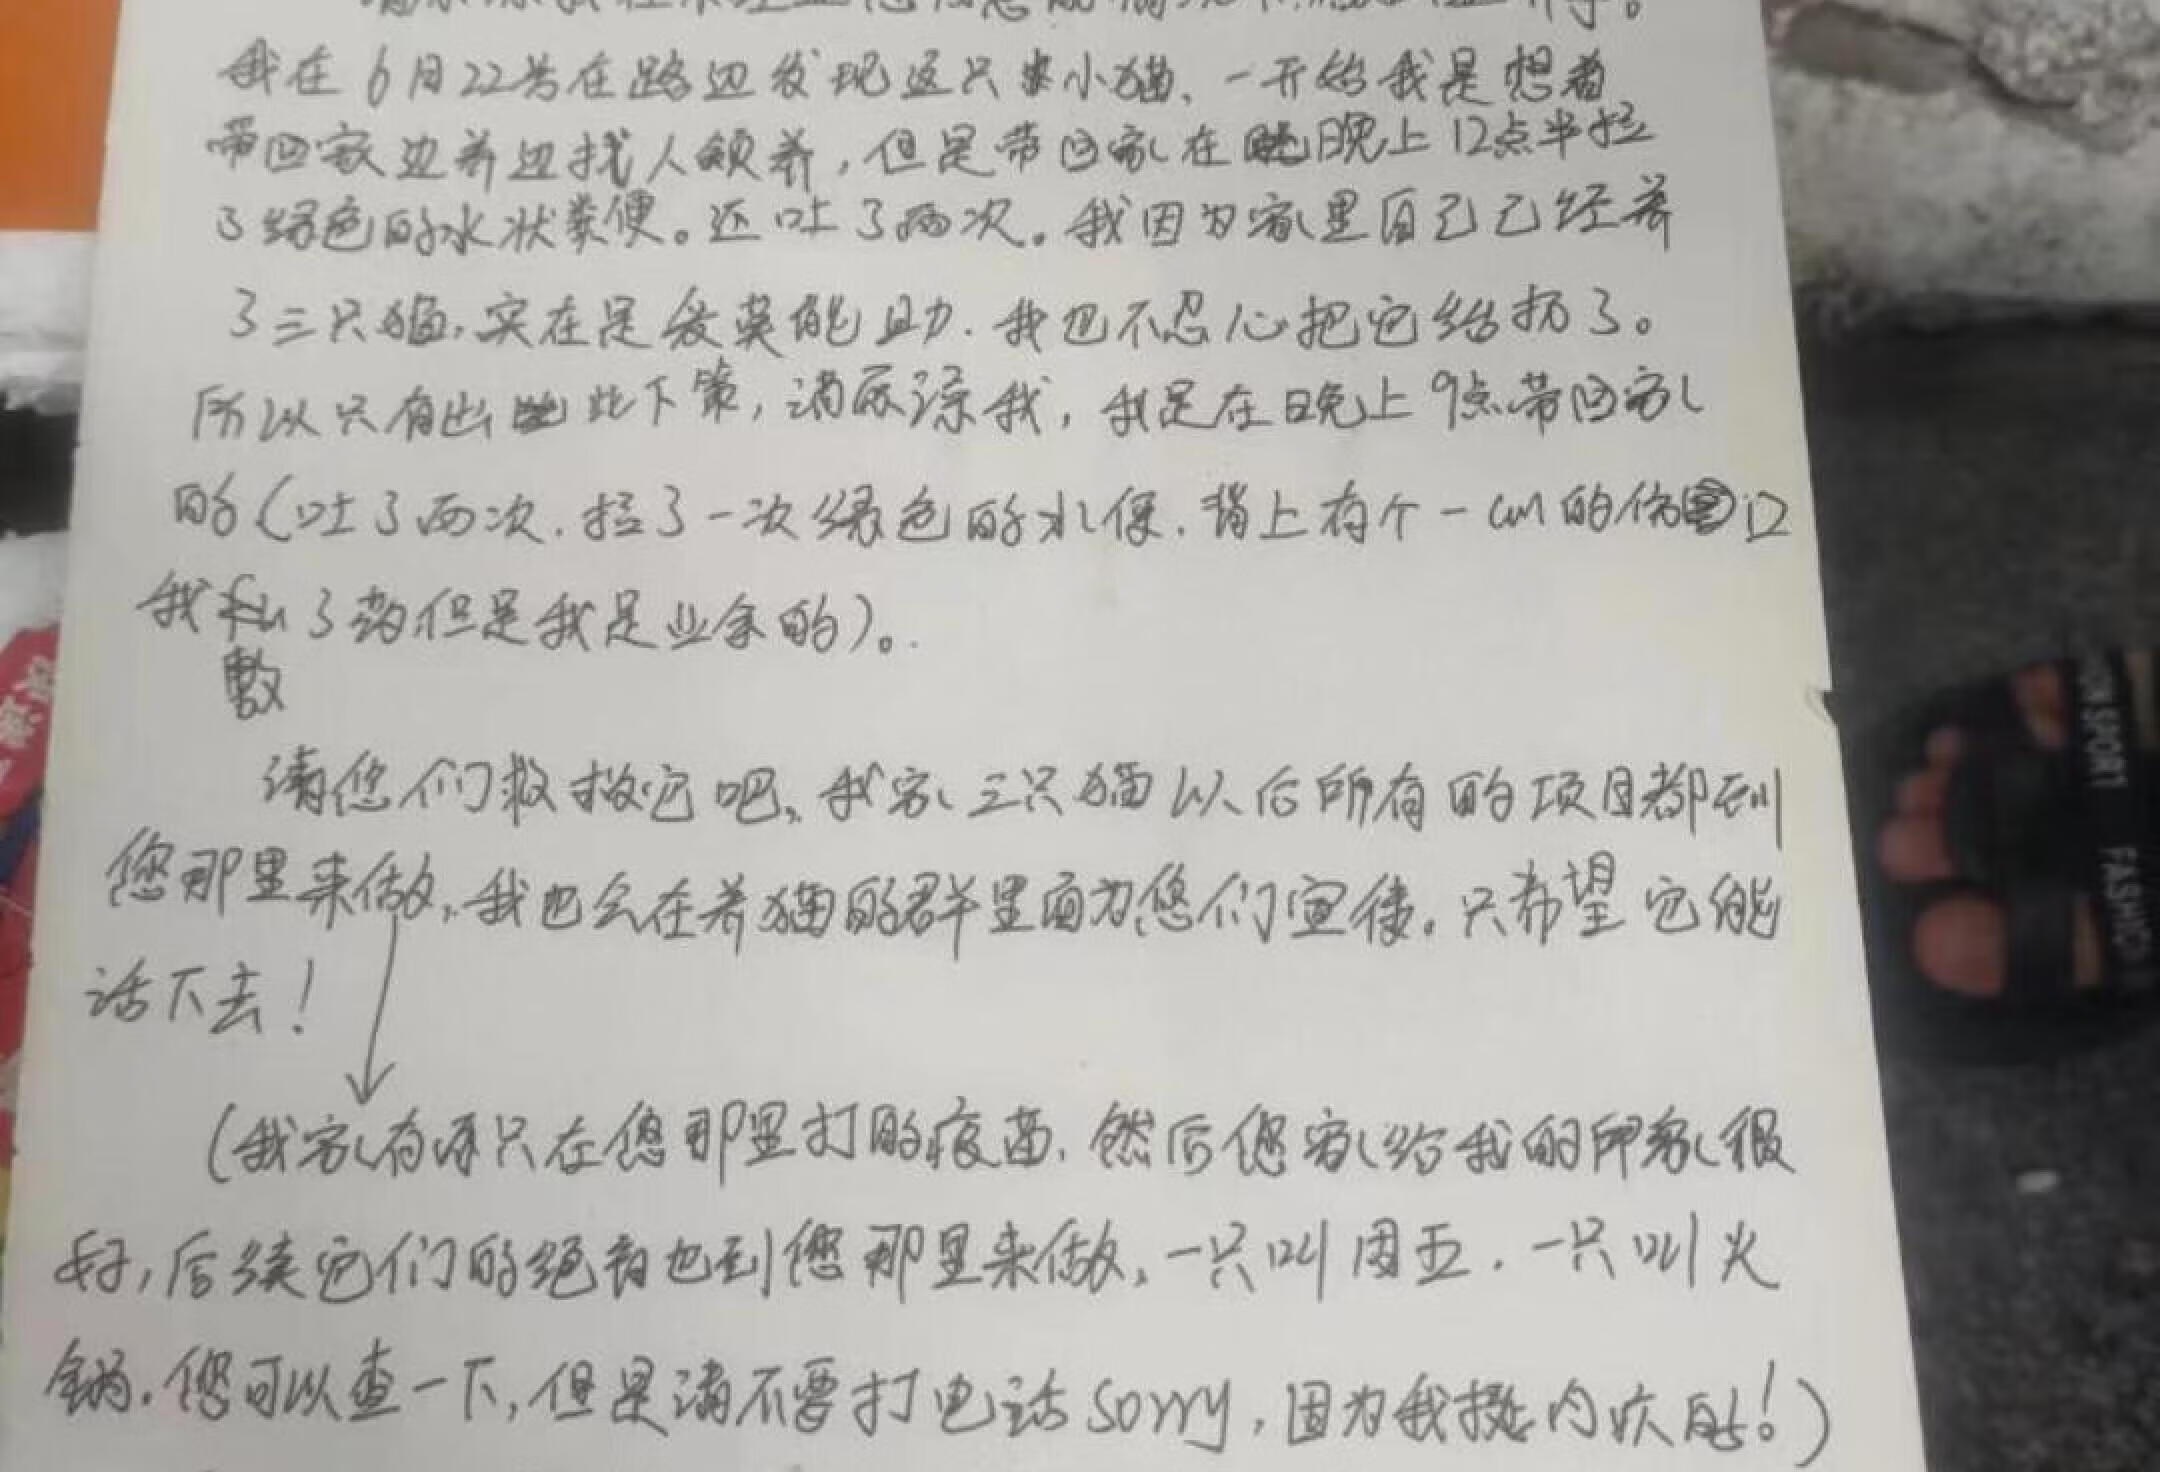 我在6月22号在路边发现这只小猫、一开始我是想着
带回家边养边找人领养，但是带回家在晚上12点半拉
了绿色的水状粪便。还吐了两次。我因为家里自己已经养
了三只猫，实在是爱莫能助．我也不忍心把它给扔了。
所以只有出此下策，请原谅我，我是在晚上9点带回家
的（吐了两次．拉了一次绿色的水便．背上有个一cm的伤口
我私了药但是我是业余的）。
敷
请您们救救它吧，我家三只猫以后所有的项目都到
您那里来做，我也会在养猫的群里面为您们宣传。只希望它能
活下去！
（我家有两只在您那里打的疫苗．然后您家给我的印象很
好，后续它们的绝育也到您那里来做，一只叫周五．一只叫火
锅．您可以查一下，但是请不要打电话sorry，因为我挺内疚的！）
SPORT
FASHION